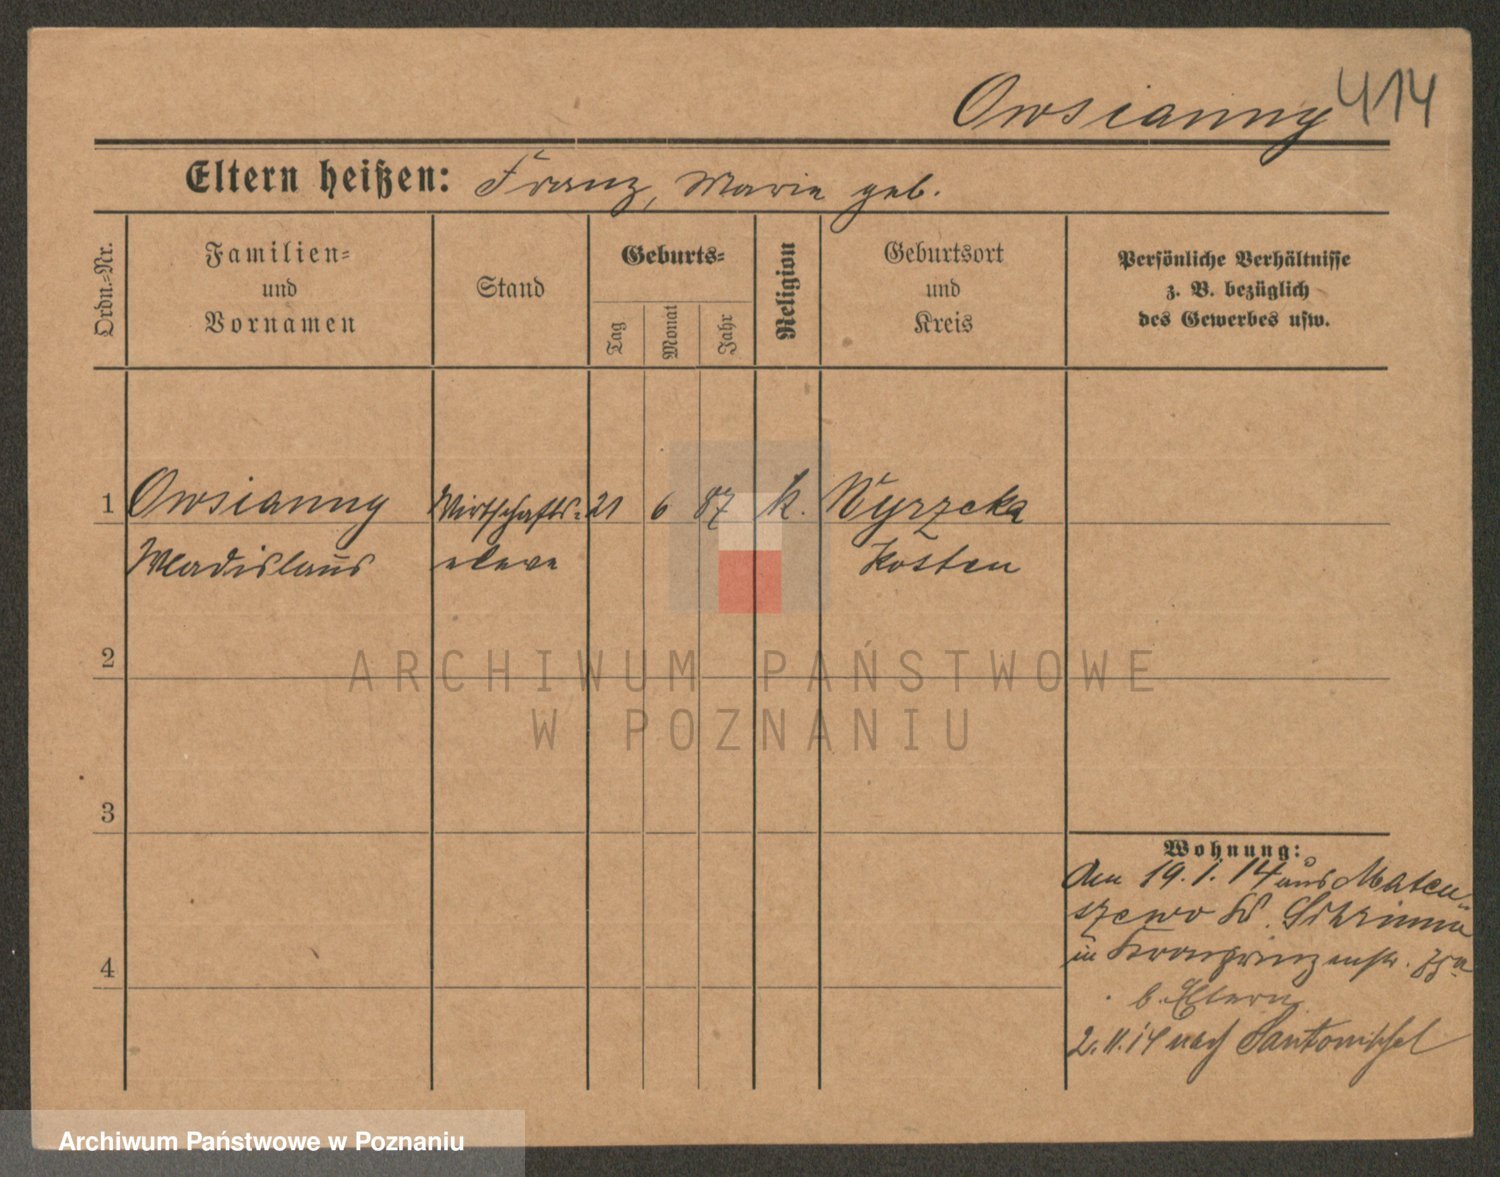 Owsianny 414
Eltern heißen: Franz, Marie geb.
Ordn.-Nr.
Familien-
und
Vornamen
Stand
Geburts-
Tag
Monat
Jahr
Religion
Geburtsort
und
Kreis
Persönliche Verhältnisse
z. B. bezüglich
des Gewerbes usw.
1 Owsianny Wirtschafts- 21 6 87 k. Wyrzeka
Wladislaus eleve Kosten
2
ARCHIWUM PAŃSTWOWE
W POZNANIU
3
Wohnung:
den 19.1.14 aus
in Kronprinzenstr.
b. Eltern
nach Santomischel
4
Archiwum Państwowe w Poznaniu